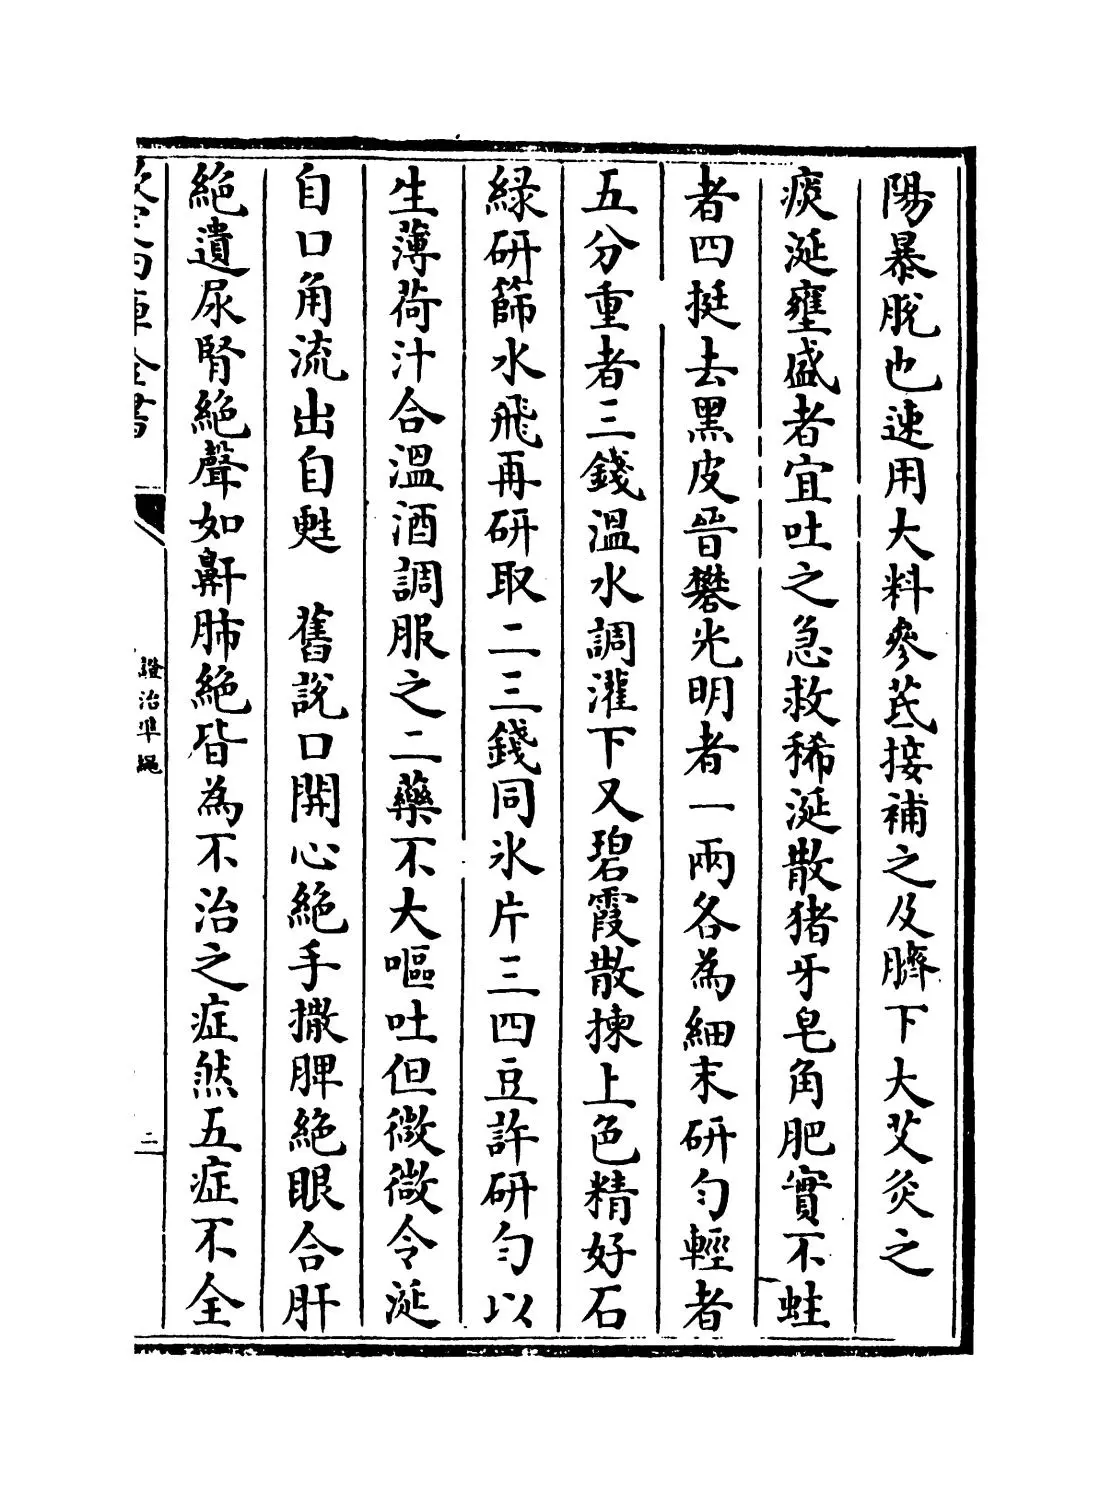 陽暴脫也速用大料參芪接補之及臍下大艾灸之
痰涎壅盛者宜吐之急救稀涎散猪牙皂角肥實不蛀
者四挺去黑皮晉礬光明者一兩各為細末研勻輕者
五分重者三錢溫水調灌下又碧霞散揀上色精好石
綠研篩水飛再研取二三錢同氷片三四豆許研勻以
生薄荷汁合溫酒調服之二藥不大嘔吐但微微令涎
自口角流出自甦　舊說口開心絕手撒脾絕眼合肝
絕遺尿腎絕聲如鼾肺絕皆為不治之症然五症不全
欽定四庫全書
證治準繩
二